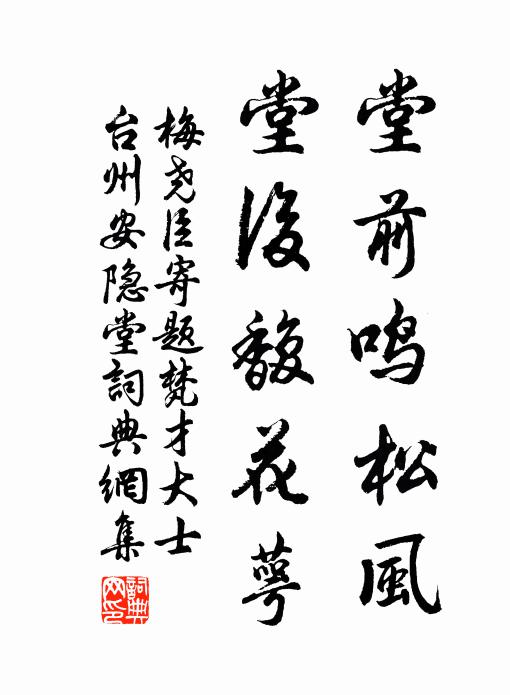 堂前鸣松風
堂後馥花萼
梅尧臣寄题梵才大士
台州安隐堂詞典網集